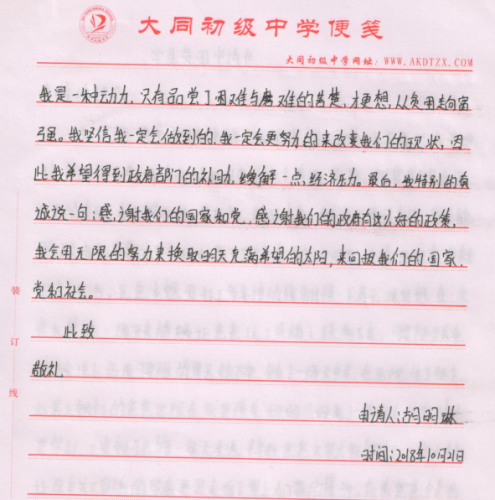 大同初级中学便笺
大同初级中学网址：WWW.AKDTZX.COM
我是一种动力，只有品尝了困难与磨难的苦楚，才更想，从贫困走向富
强。我坚信我一定会做到的，我一定会更努力的来改变我们的现状，因
此我希望得到政府部门的补助，缓解一点，经济压力。最后，我特别的真
诚说一句：感谢我们的国家和党，感谢我们的政府有这么好的政策，
我会用无限的努力来换取明天充满希望的太阳，来回报我们的国家、
党和社会。
此致
敬礼
装
订
线
申请人：胡明琳
时间：2018年10月21日